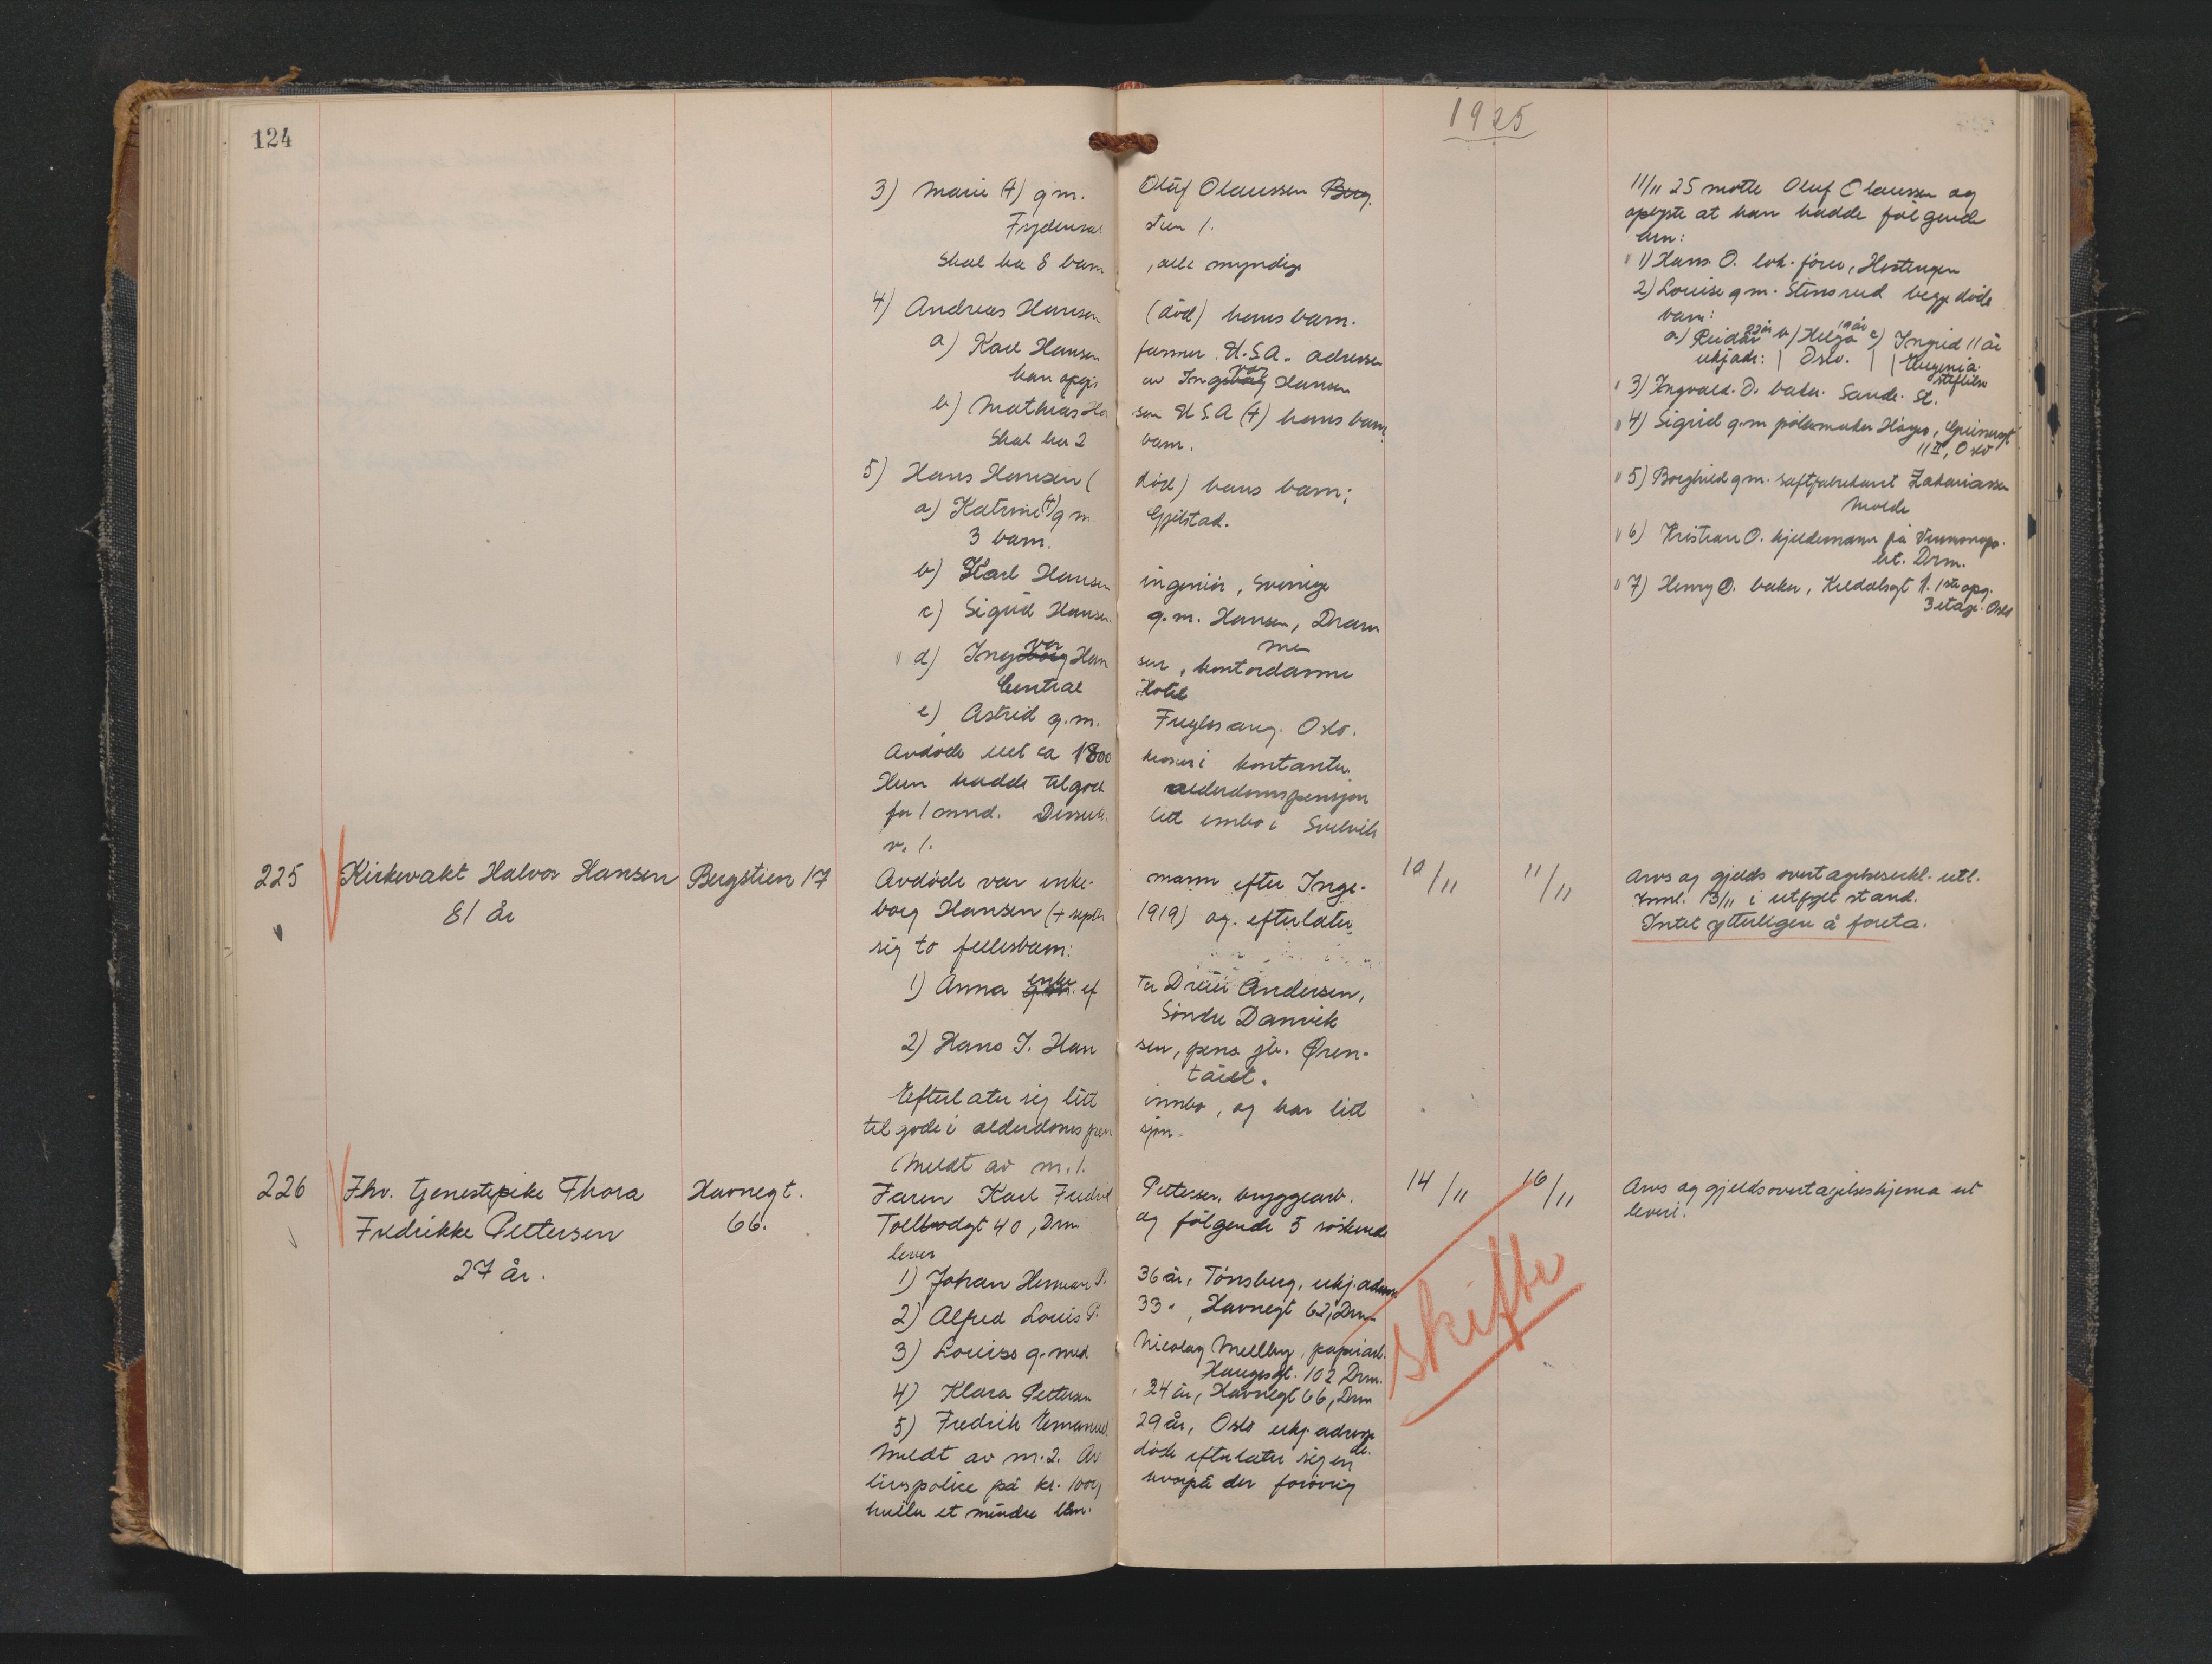 124
1925
3) Marie (+) g.m. Oluf Olaussen Berg.
Frydensal stien 1.
Skal ha 8 barn, alle myndige
4) Andreas Hansen (død) hans barn.
a) Karl Hansen farmer U.S.A. adressen
kan opgis av Ingvar Hansen
b) Mathias Hansen U.S.A (+) hans barn
Skal ha 2 barn.
5) Hans Hansen (død) hans barn:
a) Katrine (+) g.m. Gjelstad.
3 barn.
b) Karl Hansen ingeniør, Sverige
c) Sigrid Hansen g.m. Hansen, Dram
men
d) Ingvar Hansen, kontordamme
Central Hotel
e) Astrid g.m. Fuglesang. Oslo.
Avdøde eiet ca 1800 kroner i kontanter.
Hun hadde tilgode alderdomspensjon
for 1 mnd. Dessuten litt innbo i Svelvik
v. 1.
11/11 25 møtte Oluf Olaussen og
oplyste at han hadde følgende
arv:
1) Hans O. lok. fører,
2) Louise g.m. Stensrud begge døde
barn:
a) Reidar 22 år b) Helga 19 år c) Ingrid 11 år
ukj adr: | Oslo. | Eugenia
stiftelse
3) Ingvald O. baker. Sande St.
4) Sigrid g.m. pølsemaker
11 II, Oslo
5) Borghild g.m. saftfabrikant Zakariassen
Molde
6) Kristian O. kjeldemann på
Drm.
7) Henry O. baker, 1. 1ste opg.
3 etage. Oslo
225 Kirkevakt Halvor Hansen Bergstien 17 Avdøde var enkemann efter Inge- 10/11 11/11 Arvs og gjelds overtagelseserkl. utl.
81 år borg Hansen (+ septbr. 1919) og efterlater Innl. 13/11 i utfylt stand.
sig to fellesbarn: Intet ytterligere å foreta.
1) Anna enke efter Andersen,
Søndre Danvik
2) Hans J. Hansen, pens. jb. Øren-
Efterlater sig litt innbo, og har litt
til gode i alderdomspensjon.
Meldt av nr. 1.
226 Fhv. tjenestepike Thora Havnegt. Faren Karl Fredrik Pettersen, bryggearb. 14/11 16/11 Arvs og gjeldsovertagelseskjema ut
Fredrikke Pettersen 66. Tollbodgt 40, Drm og følgende 5 søskende levert.
27 år. lever
1) Johan Herman P. 36 år, Tønsberg, ukj. adresse
2) Alfred Louis P. 33 ", Havnegt 62, Drm
3) Louise g. med Nicolay Mellbye, papirarb.
Haugesgt. 102 Drm.
4) Klara Pettersen, 24 år, Havnegt 66, Drm
5) Fredrik Emanuel 29 år, Oslo ukj. adresse
Meldt av nr. 2. Avdøde efterlater sig en
livspolice på kr. 1000,- hvorpå der forøvrig
hviler et mindre lån.
skifte